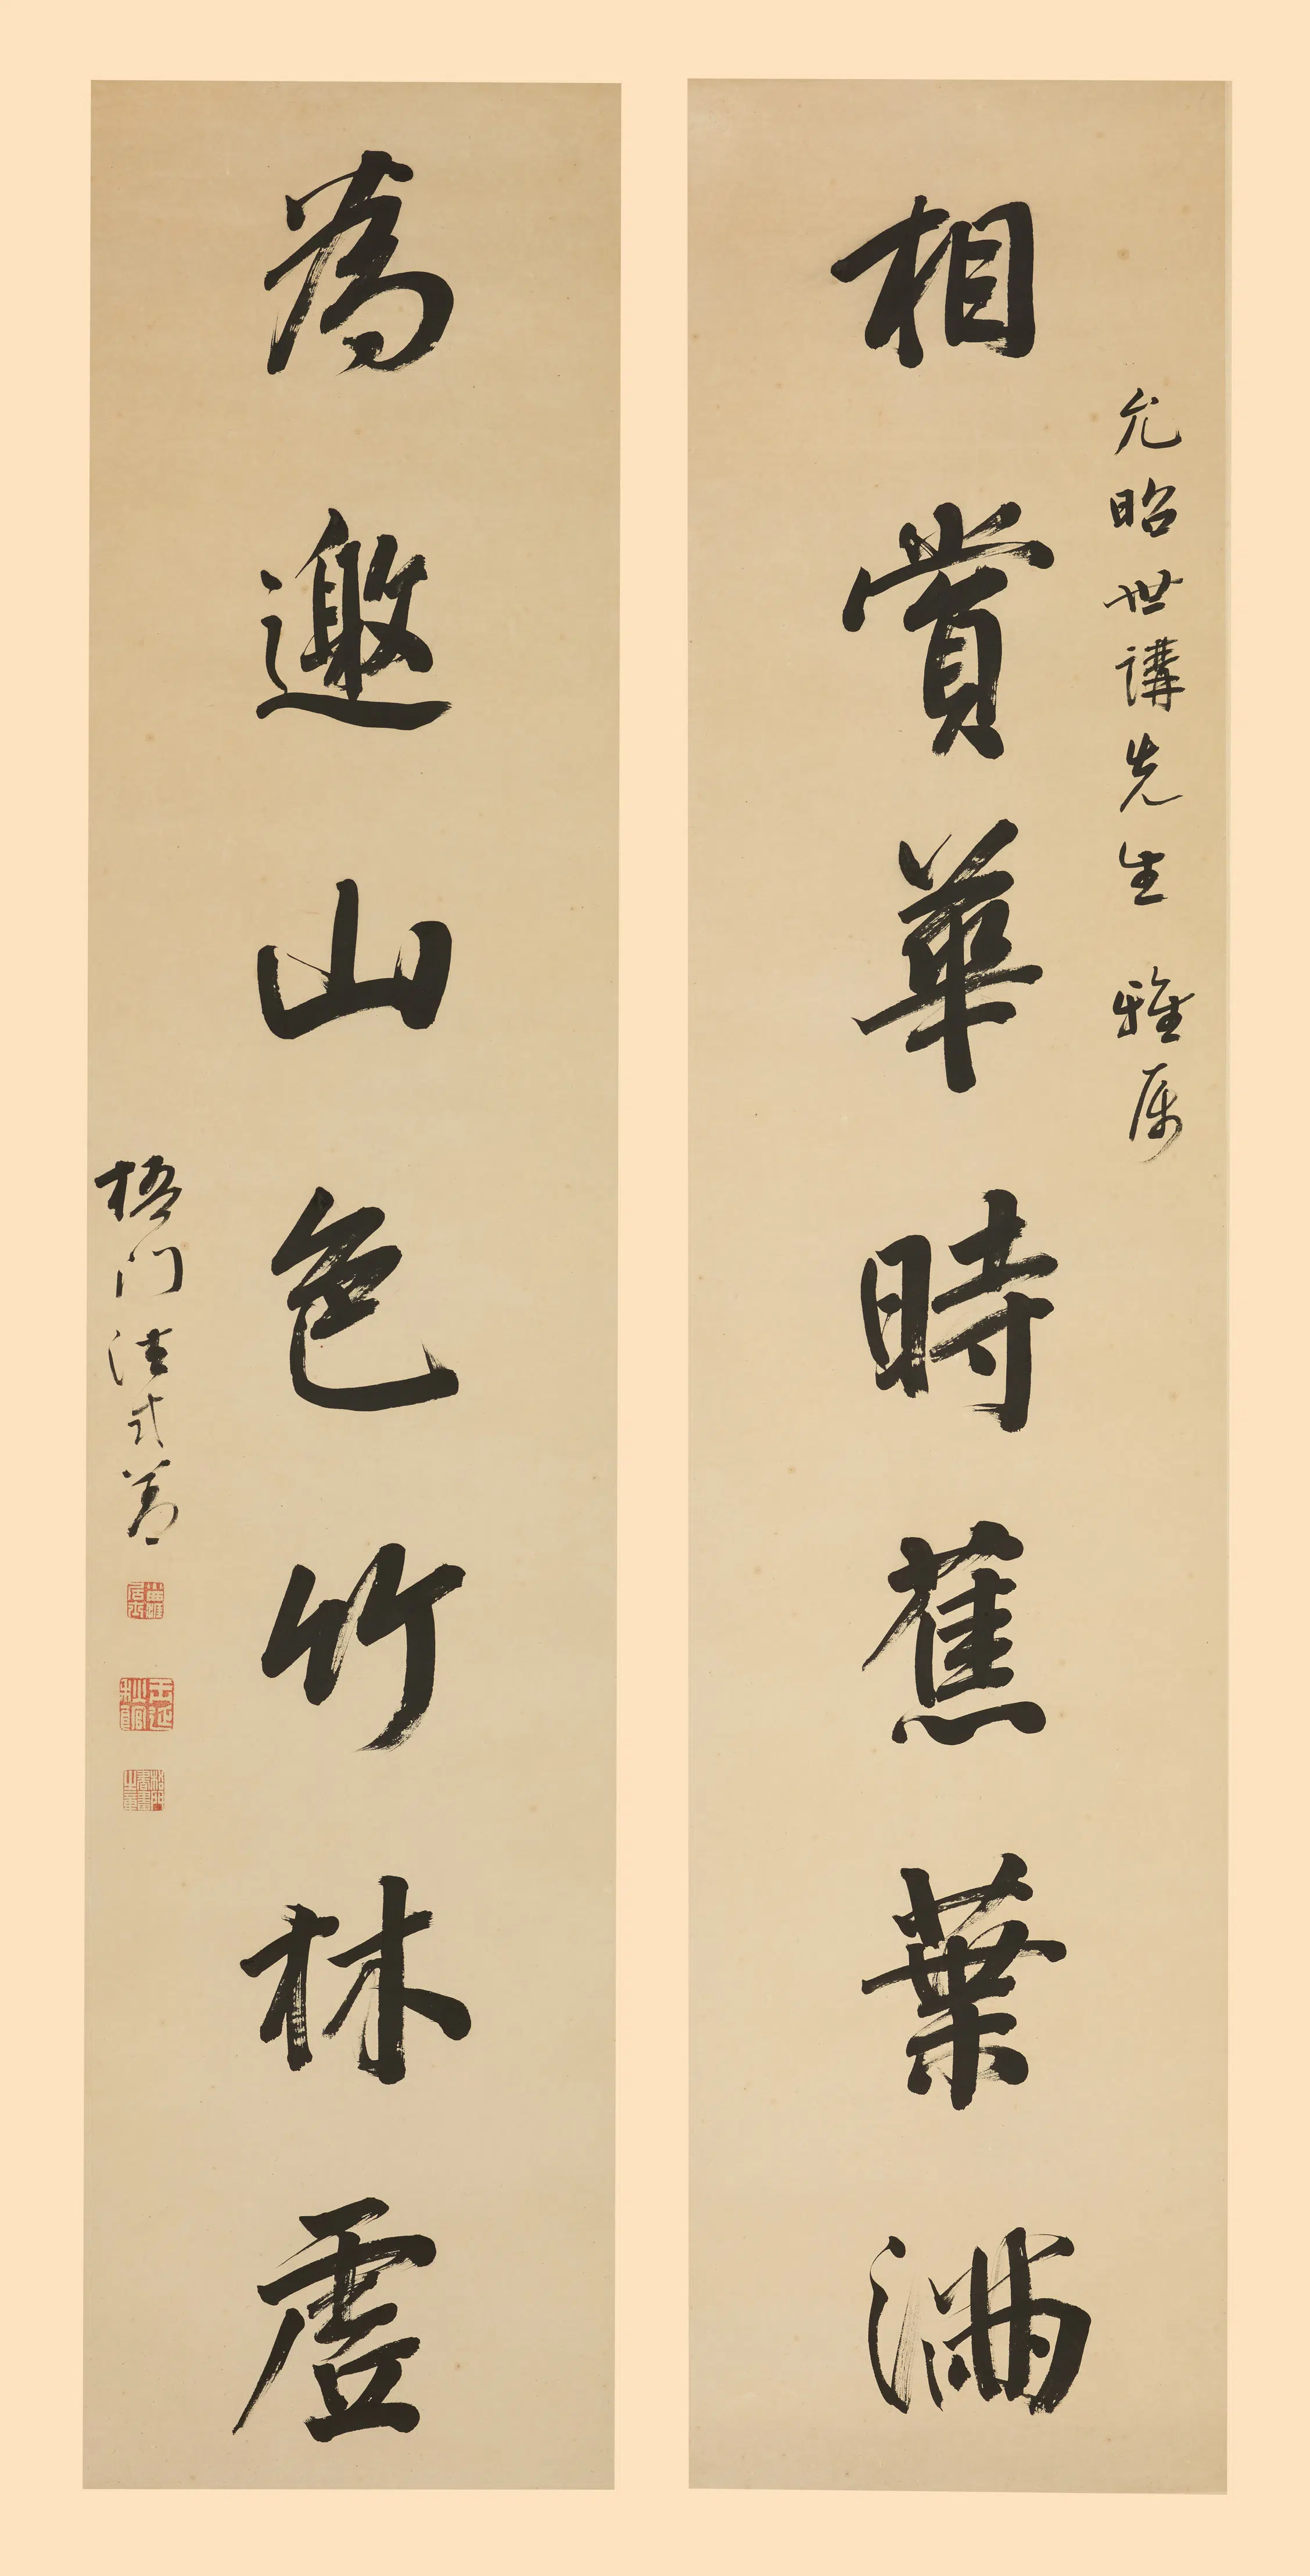 允昭世講先生 雅属
相賞華時蕉葉滿
為邀山色竹林虛
梧门法式善